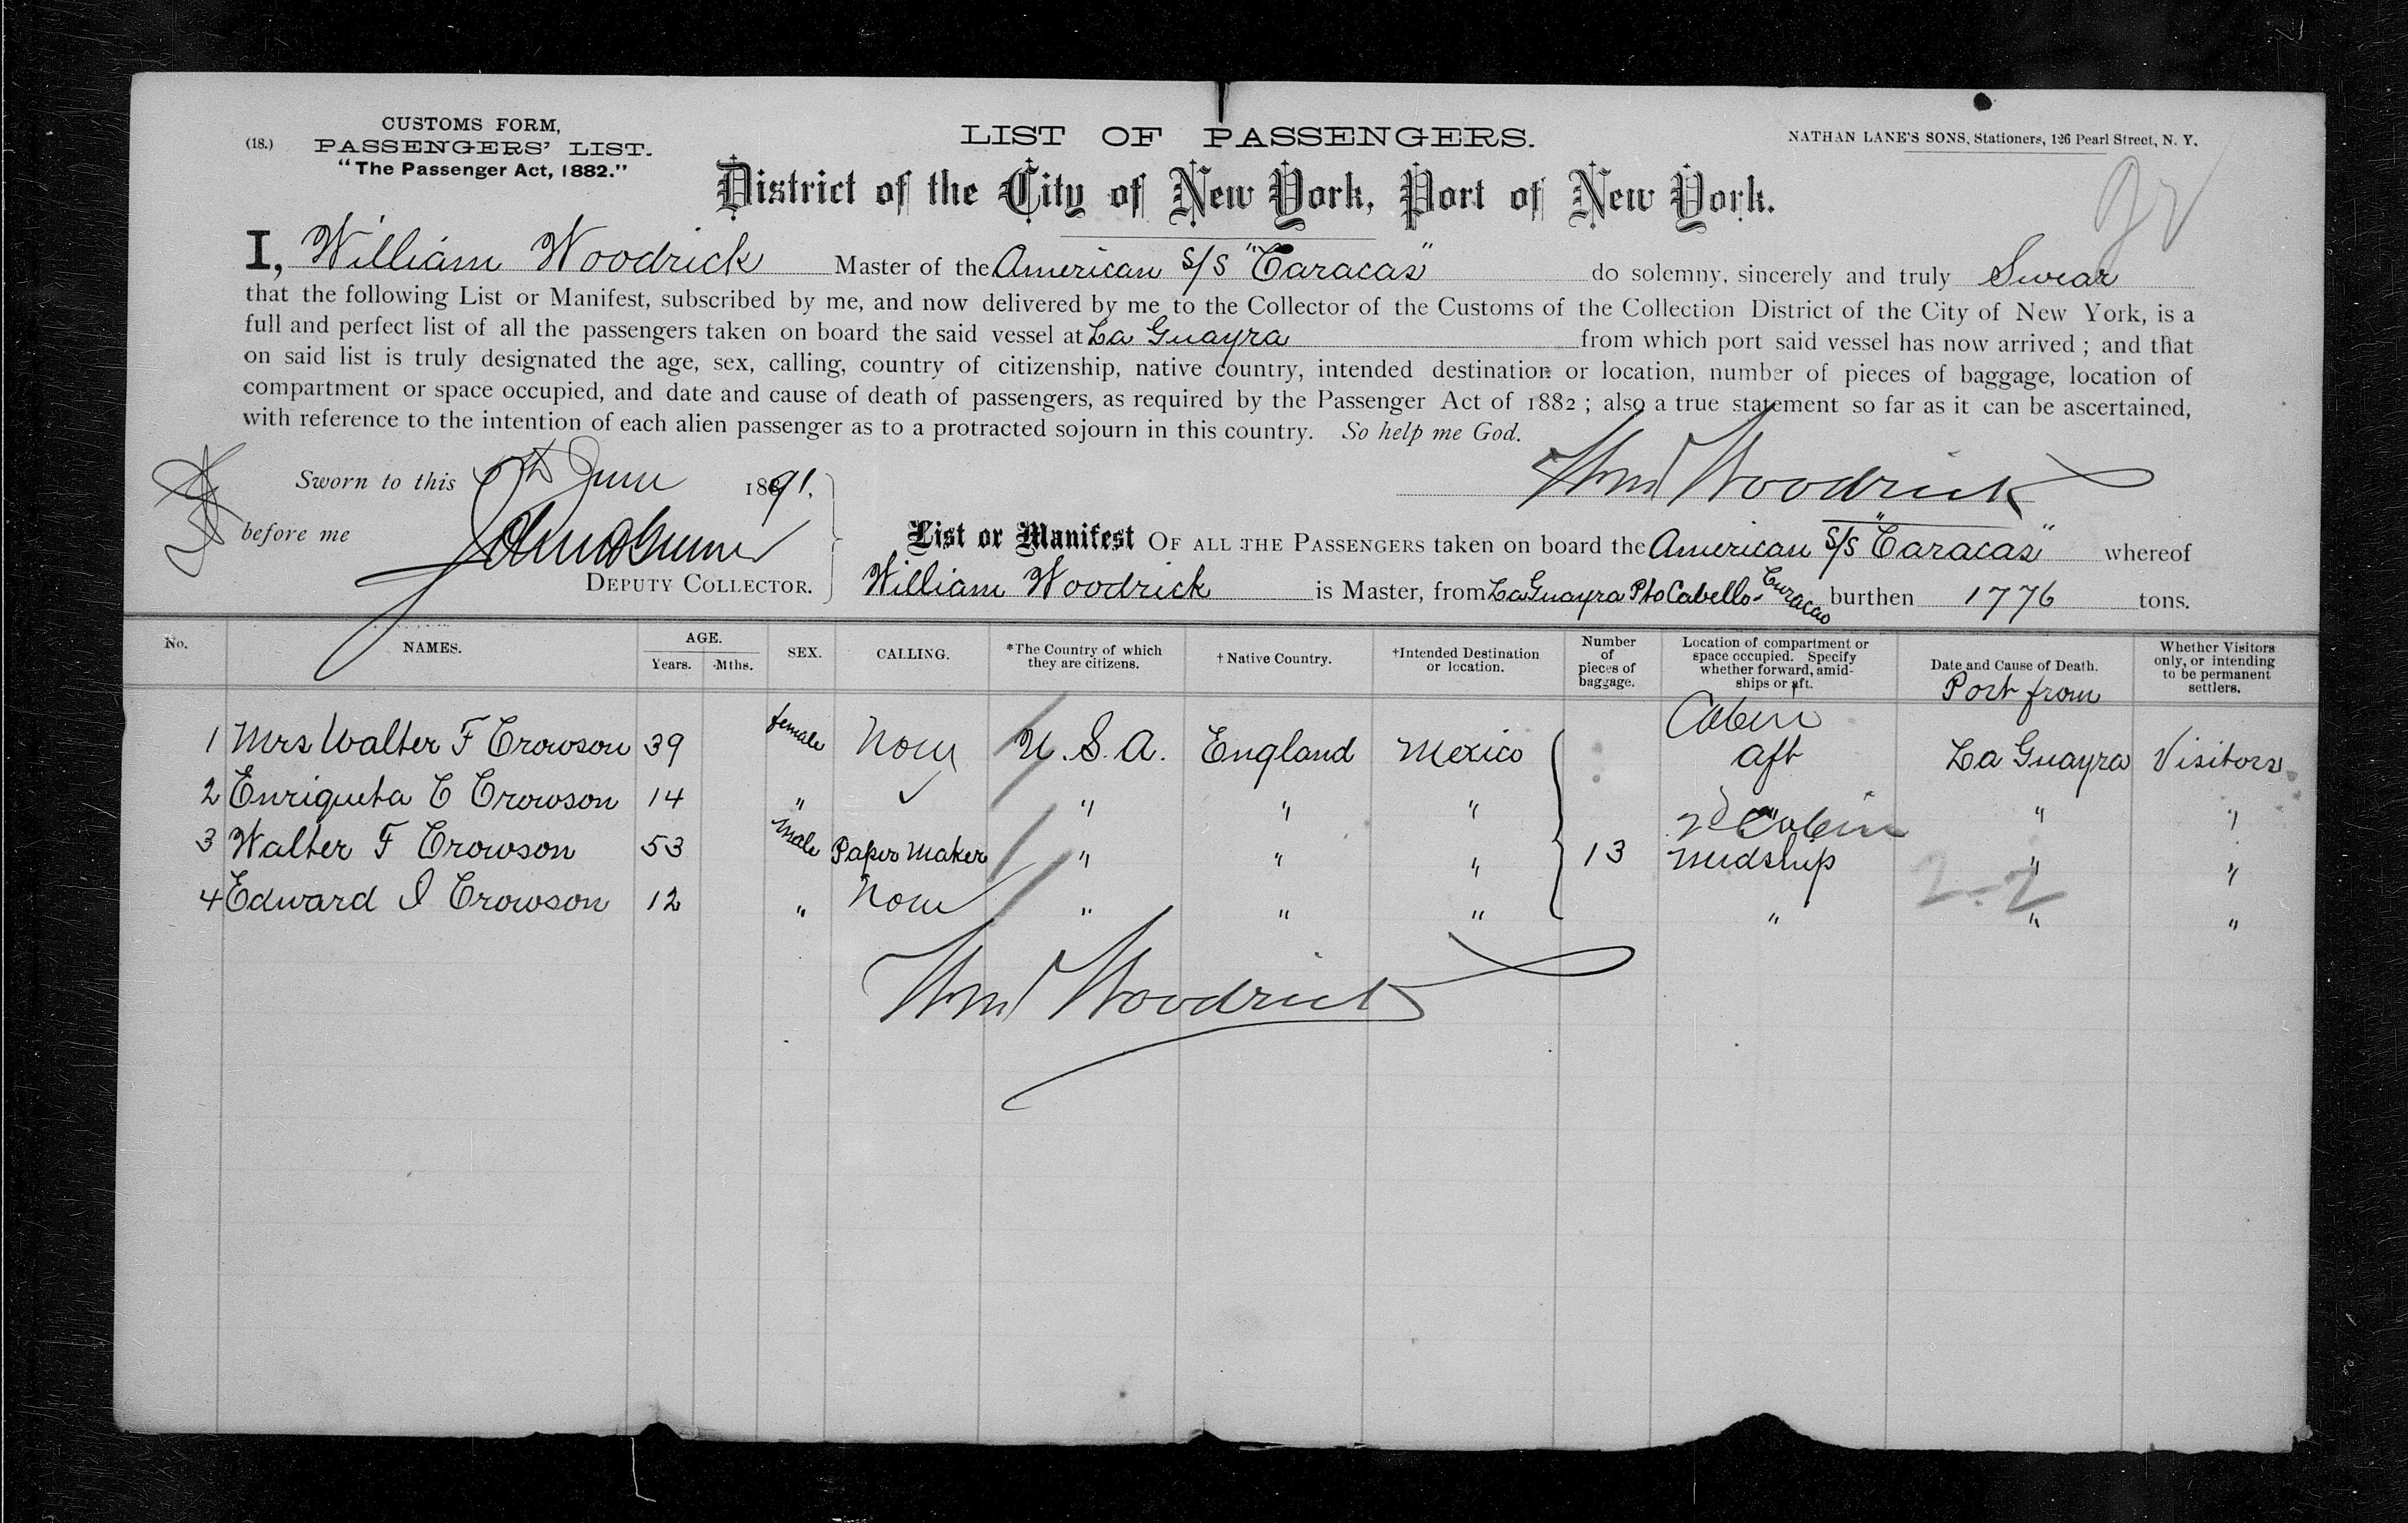 (18.)
CUSTOMS FORM,
PASSENGERS' LIST.
"The Passenger Act, 1882."
LIST OF PASSENGERS.
NATHAN LANE'S SONS, Stationers, 126 Pearl Street, N. Y.
District of the City of New York, Port of New York.
I, William Woodrick Master of the American S/S "Caracas" do solemny, sincerely and truly Swear
that the following List or Manifest, subscribed by me, and now delivered by me to the Collector of the Customs of the Collection District of the City of New York, is a
full and perfect list of all the passengers taken on board the said vessel at La Guayra from which port said vessel has now arrived ; and that
on said list is truly designated the age, sex, calling, country of citizenship, native country, intended destination or location, number of pieces of baggage, location of
compartment or space occupied, and date and cause of death of passengers, as required by the Passenger Act of 1882 ; also a true statement so far as it can be ascertained,
with reference to the intention of each alien passenger as to a protracted sojourn in this country. So help me God.
Sworn to this June 1891.
Wm Woodrick
before me
DEPUTY COLLECTOR.
List or Manifest OF ALL THE PASSENGERS taken on board the American S/S "Caracas" whereof
William Woodrick is Master, from La Guayra Pto Cabello - Curacao burthen 1776 tons.
No. NAMES. AGE. Years. Mths. SEX. CALLING. *The Country of which they are citizens. †Native Country. †Intended Destination or location. Number of pieces of baggage. Location of compartment or space occupied. Specify whether forward, amidships or aft. Date and Cause of Death. Whether Visitors only, or intending to be permanent settlers.
Port from
Cabin
1 Mrs Walter F Crowson 39 female None U.S.A. England Mexico aft La Guayra Visitors
2 Enriqueta C Crowson 14 " ✓ " " " " " "
2d Cabin
3 Walter F Crowson 53 male Paper Maker " " " 13 Midship " "
4 Edward I Crowson 12 " None " " " " " "
2-2
Wm Woodrick